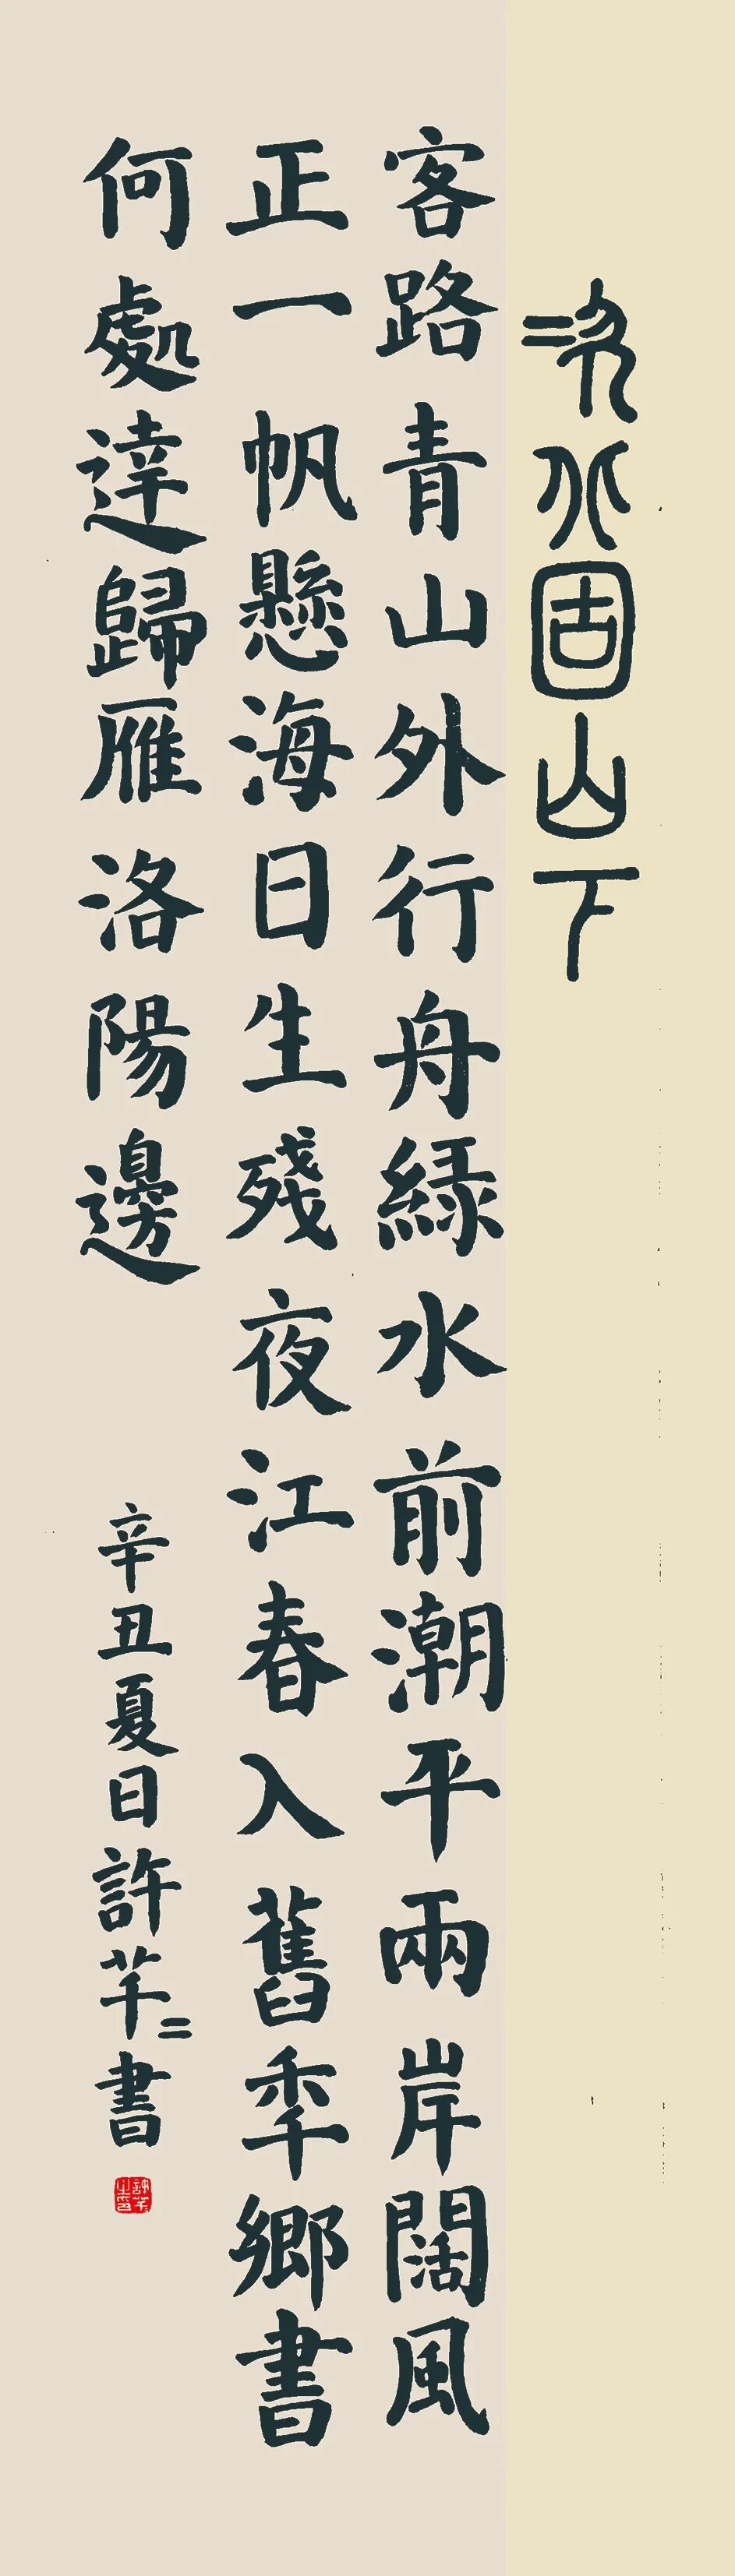 次北固山下
客路青山外行舟綠水前潮平兩岸闊風
正一帆懸海日生殘夜江春入舊年鄉書
何處達歸雁洛陽邊
辛丑夏日許芊=書